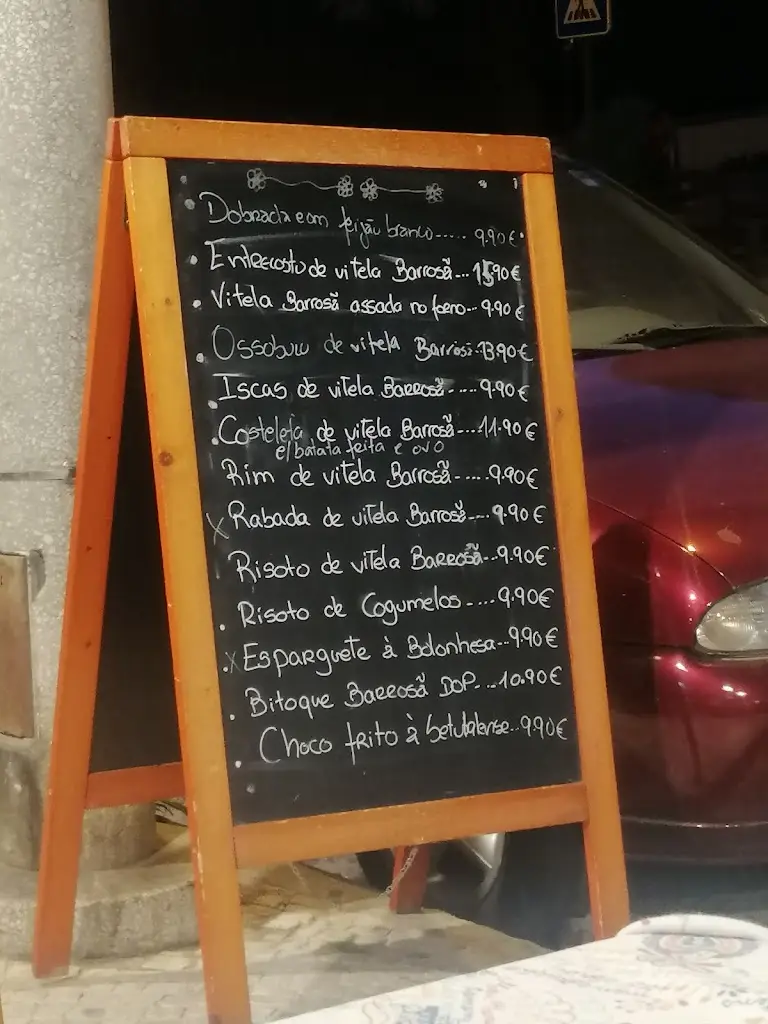 Dobrada com feijão branco..... 9.90€
Entrecosto de vitela Barrosã... 15.90€
Vitela Barrosã assada no forno... 9.90€
Ossobuco de vitela Barrosã. 13.90€
Iscas de vitela Barrosã..... 9.90€
Costeleta de vitela Barrosã.... 11.90€
c/ batata feita e ovo
Rim de vitela Barrosã..... 9.90€
X Rabada de vitela Barrosã.... 9.90€
Risoto de vitela Barrosã... 9.90€
Risoto de Cogumelos..... 9.90€
X Esparguete à Bolonhesa... 9.90€
Bitoque Barrosã DOP... 10.90€
Choco frito à Setubalense.. 9.90€